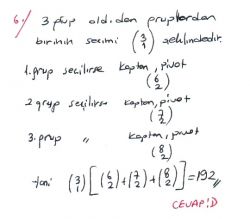 6-) 3 grup oldidan gruplardan
birinin seçimi (3 1) şeklindedir.
1. grup seçilirse kaptan, pivot
(6 2)
2 grup seçilirse kaptan, pivot
(7 2)
3. grup " kaptan, pivot
(8 2)
(3 1) [ (6 2) + (7 2) + (8 2) ] = 192,,
CEVAP: D